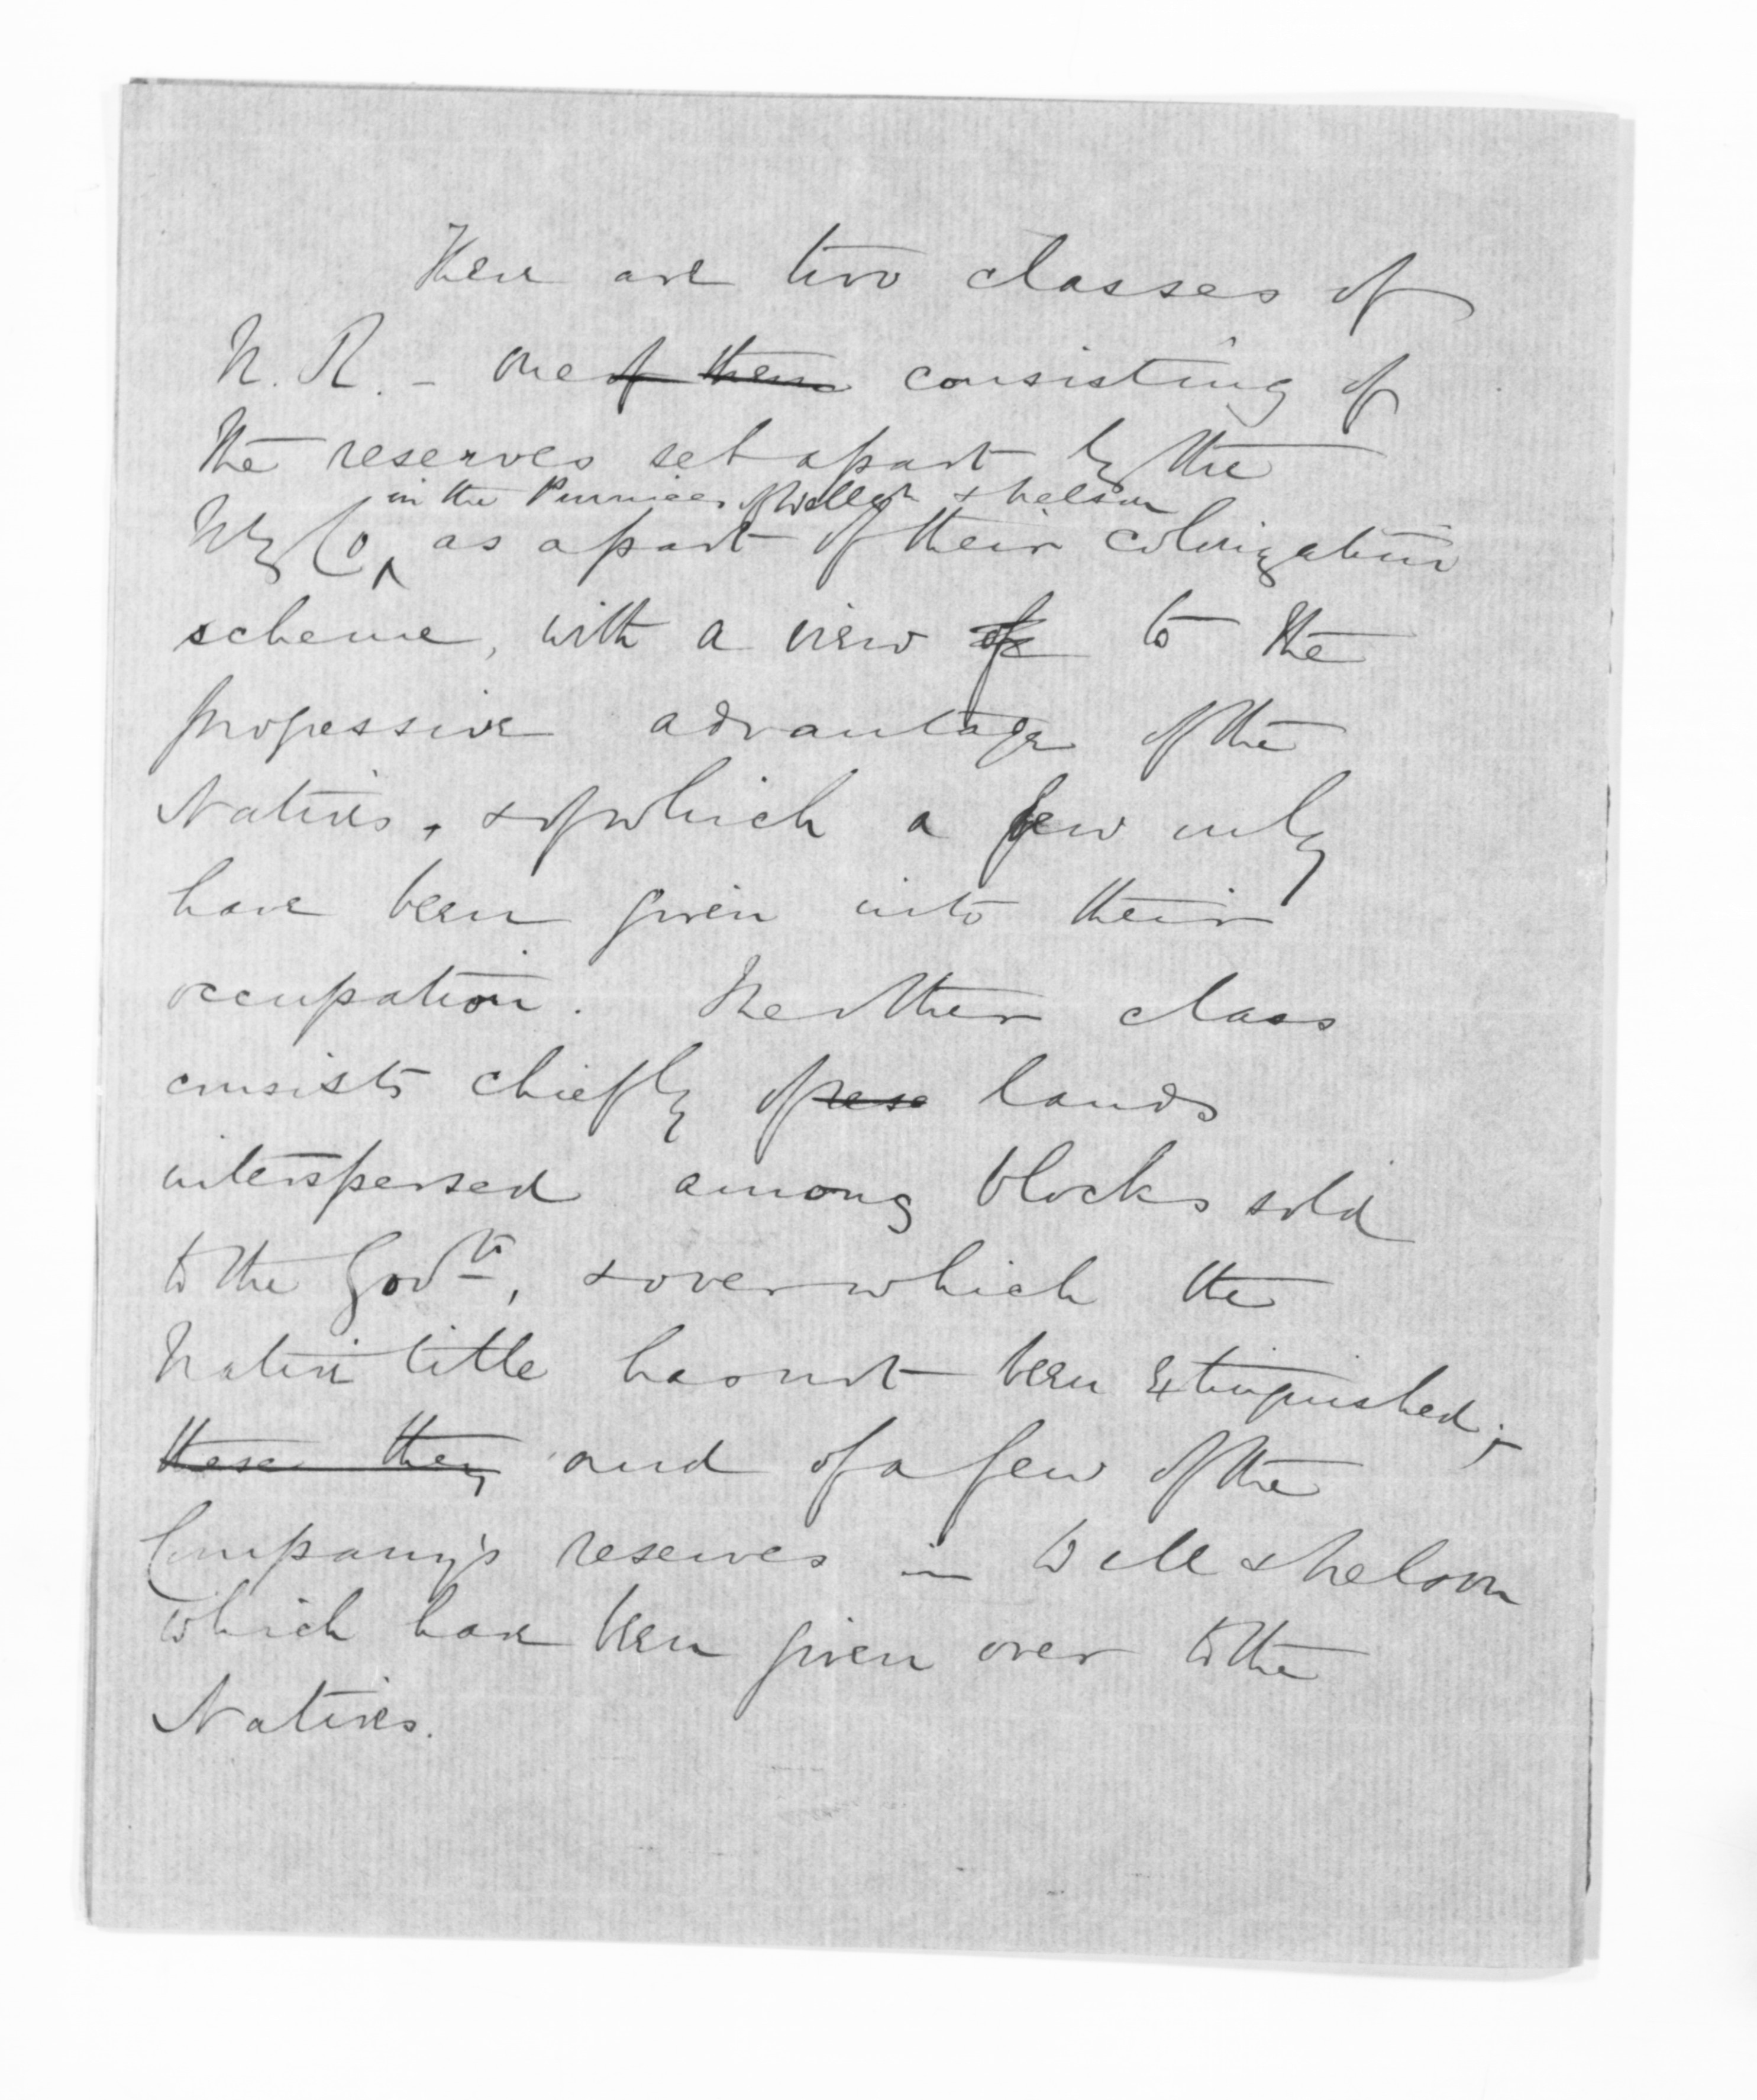 There are two classes of
N. R. - one of them consisting of
the reserves set apart by the
in the Provinces of Wellgtn & Nelson
NZ Co as a part of their colonization
scheme, with a view of to the
progressive advantage of the
Natives, & of which a few only
have been given into their
occupation. The other class
consists chiefly of rese lands
interspersed among blocks sold
to the Govt, & over which the
Native title has not been extinguished;
these they and of a few of the
Company's reserves in Well & Nelson
which have been given over to the
Natives.